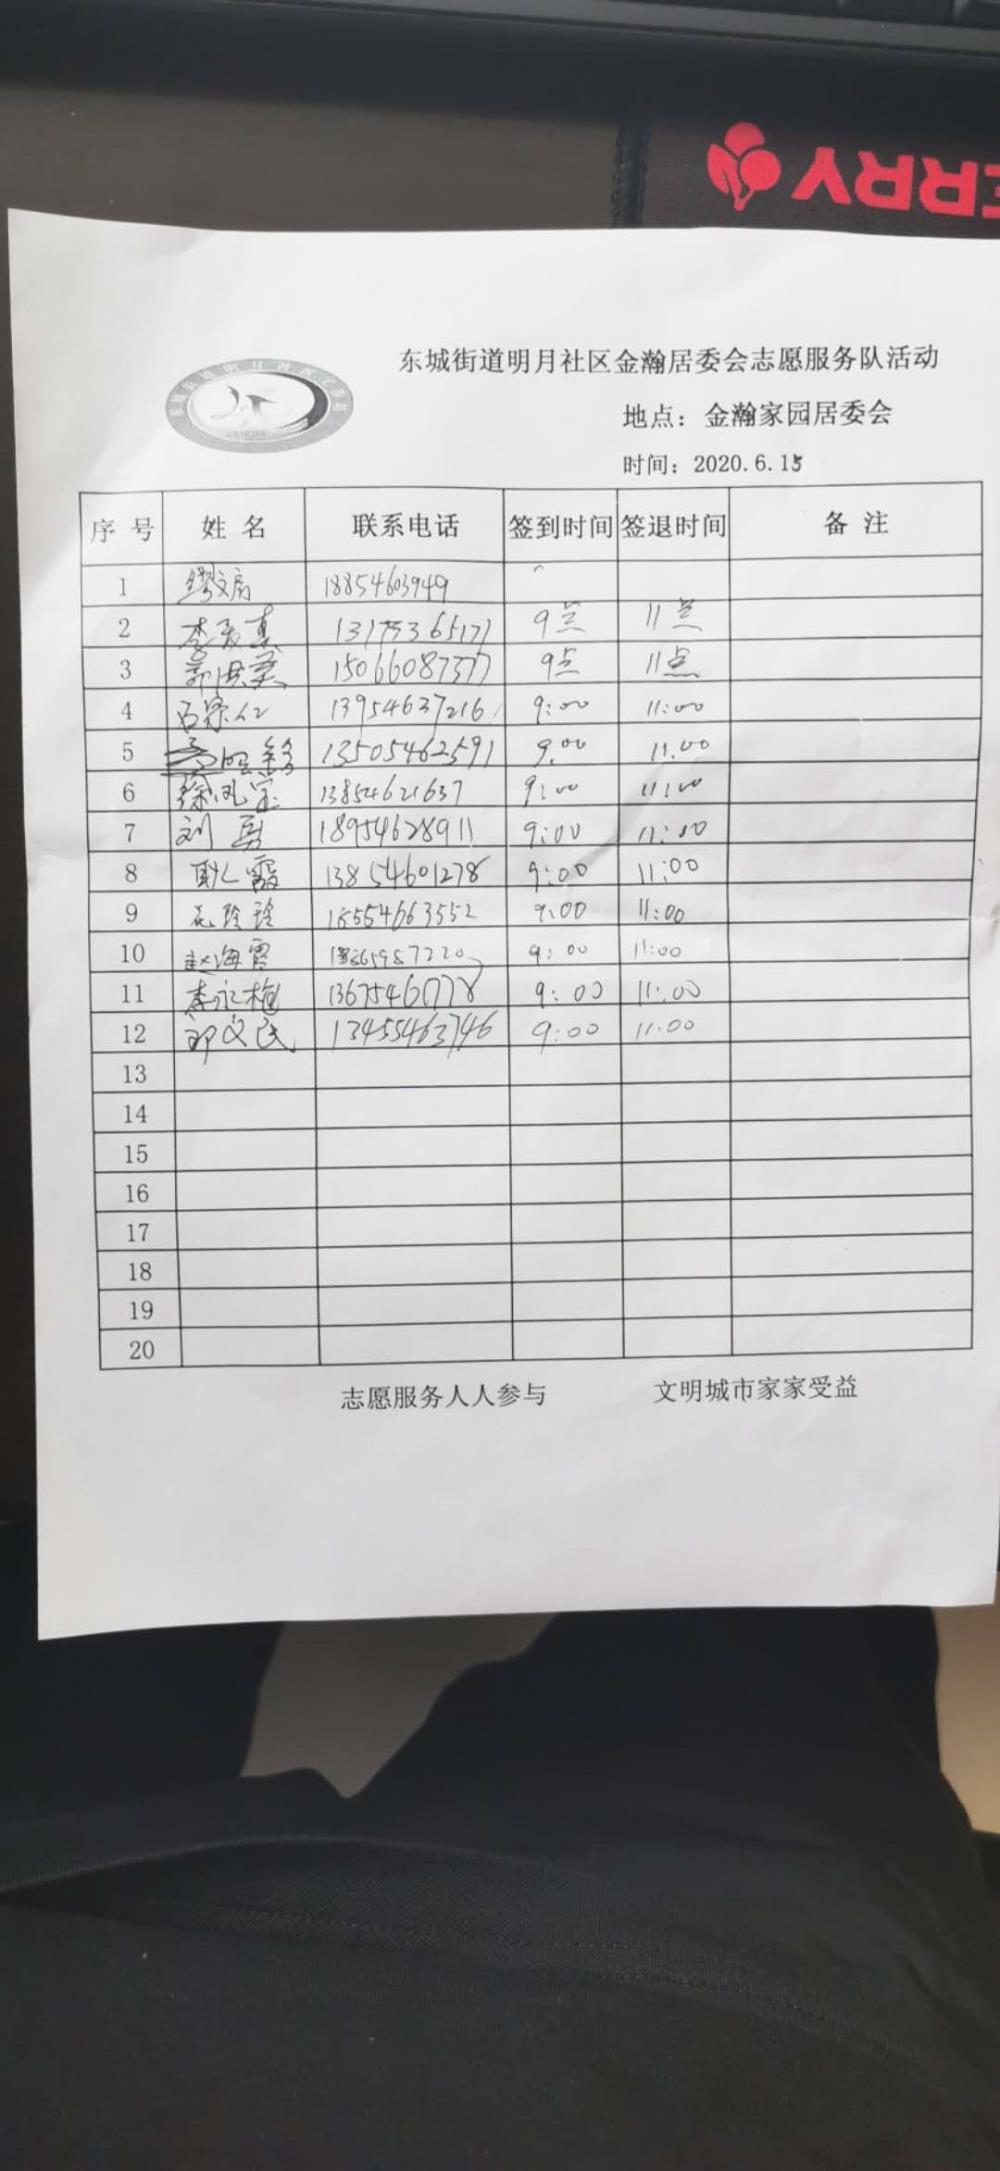 ERRY
东城街道明月社区金瀚居委会志愿服务队活动
地点：金瀚家园居委会
时间：2020.6.15
序号 姓名 联系电话 签到时间 签退时间 备注
1 18854603949
2 13175365171 9点 11点
3 15066087377 9点 11点
4 13954637216 9:00 11:00
5 13505462591 9:00 11:00
6 徐凤宝 13854621637 9:00 11:00
7 刘勇 18954628911 9:00 11:00
8 耿仁霞 13854601278 9:00 11:00
9 花玲玲 18554663552 9:00 11:00
10 赵海霞 9:00 11:00
11 李永梅 13675461778 9:00 11:00
12 邹文民 13455463746 9:00 11:00
13
14
15
16
17
18
19
20
志愿服务人人参与 文明城市家家受益